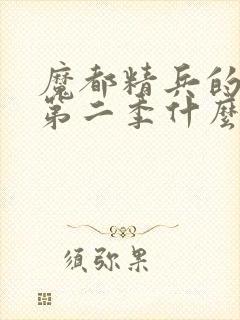 魔都精兵的
第二季什麼
须弥果